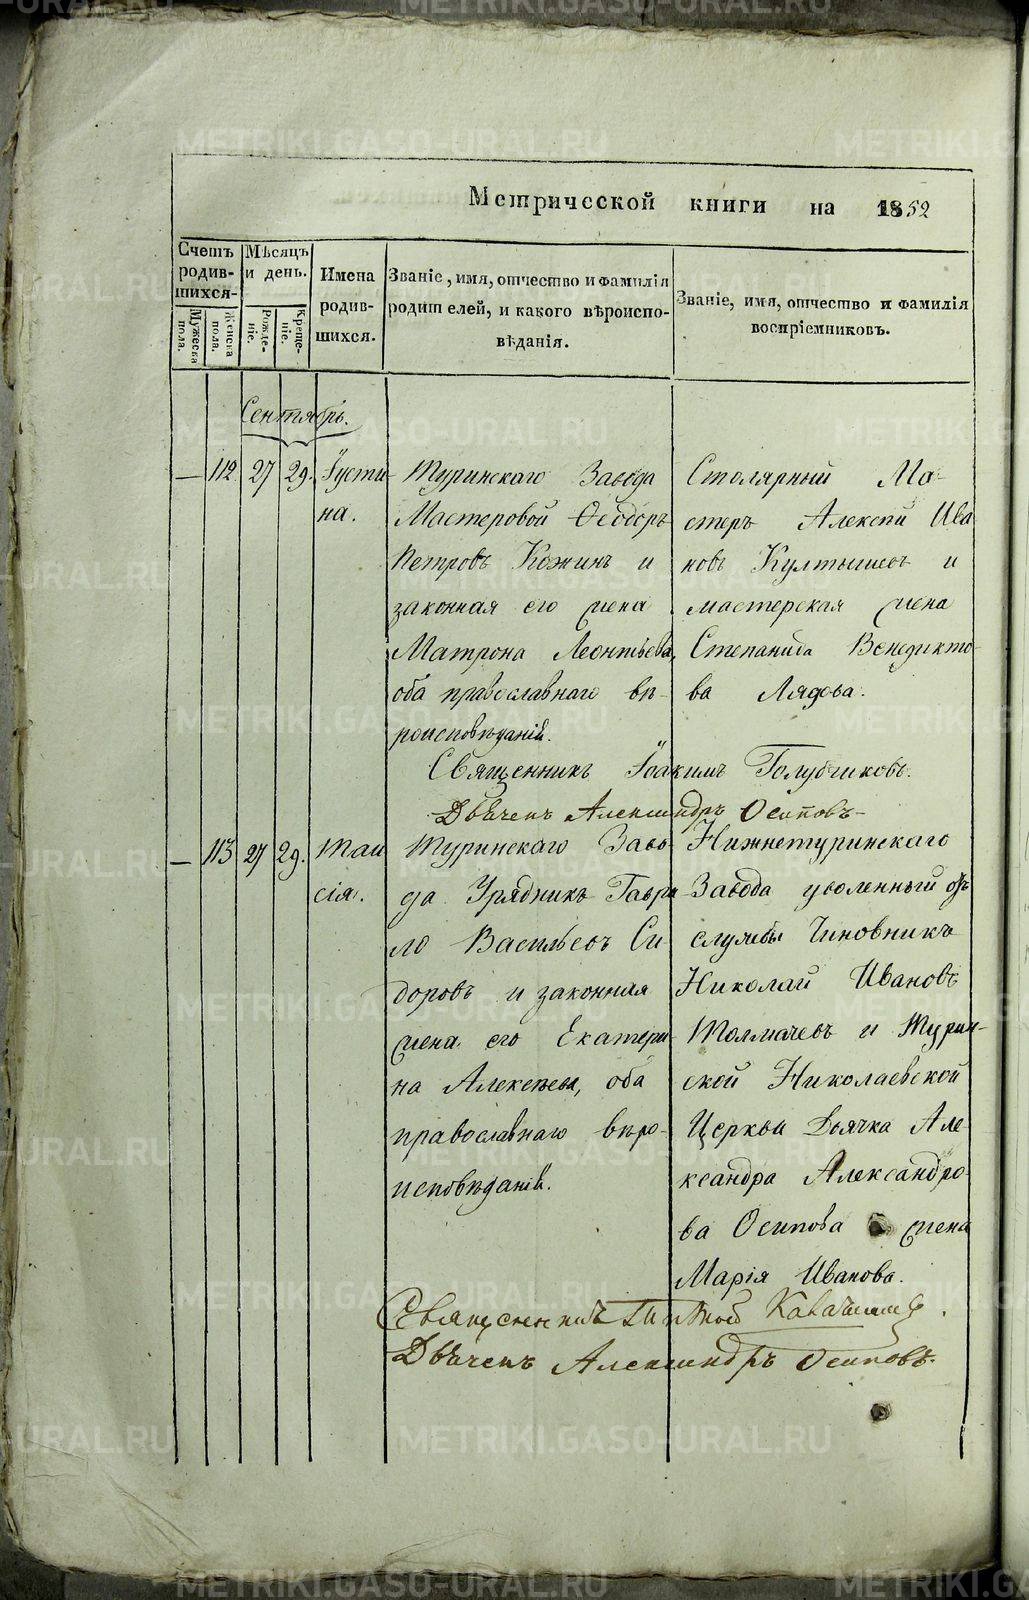 Метрической книги на 1852
Счетъ родив-шихся.
Мужеска пола.
Женска пола.
Мѣсяцъ и день.
Рожде-ніе.
Креще-ніе.
Имена родив-шихся.
Званіе, имя, отчество и фамилія
родителей, и какого вѣроиспо-
вѣданія.
Званіе, имя, отчество и фамилія
воспріемниковъ.
Сентябрь.
— 112. 27 29. Іусти-
на.
Туринскаго Завода
Мастеровой Ѳеодоръ
Петровъ Кожинъ и
законная его жена
Матрона Леонтьева,
оба православнаго вѣ-
роисповѣданій.
Столярный Ма-
стеръ Алексій Ива
новъ Култышевъ и
мастерская жена
Степанида Венедикто-
ва Лядова.
Священникъ Іоакимъ Голубчиковъ.
Дьячекъ Александръ Осиповъ
— 113 27 29. Таи
сія.
Туринскаго Заво
да Урядникъ Гаври
ло Васильевъ Си-
доровъ и законная
жена его Екатери-
на Алексѣева, оба
православнаго вѣро-
исповѣданій.
Нижнетуринскаго
Завода уволенный отъ
службы Чиновникъ
Николай Ивановъ
Толмачевъ и Турин-
ской Николаевской
Церкви Дьячка Але-
ксандра Александро-
ва Осипова жена
Марія Иванова.
Священникъ
Дьячекъ Александръ Осиповъ.
METRIKI.GASO-URAL.RU